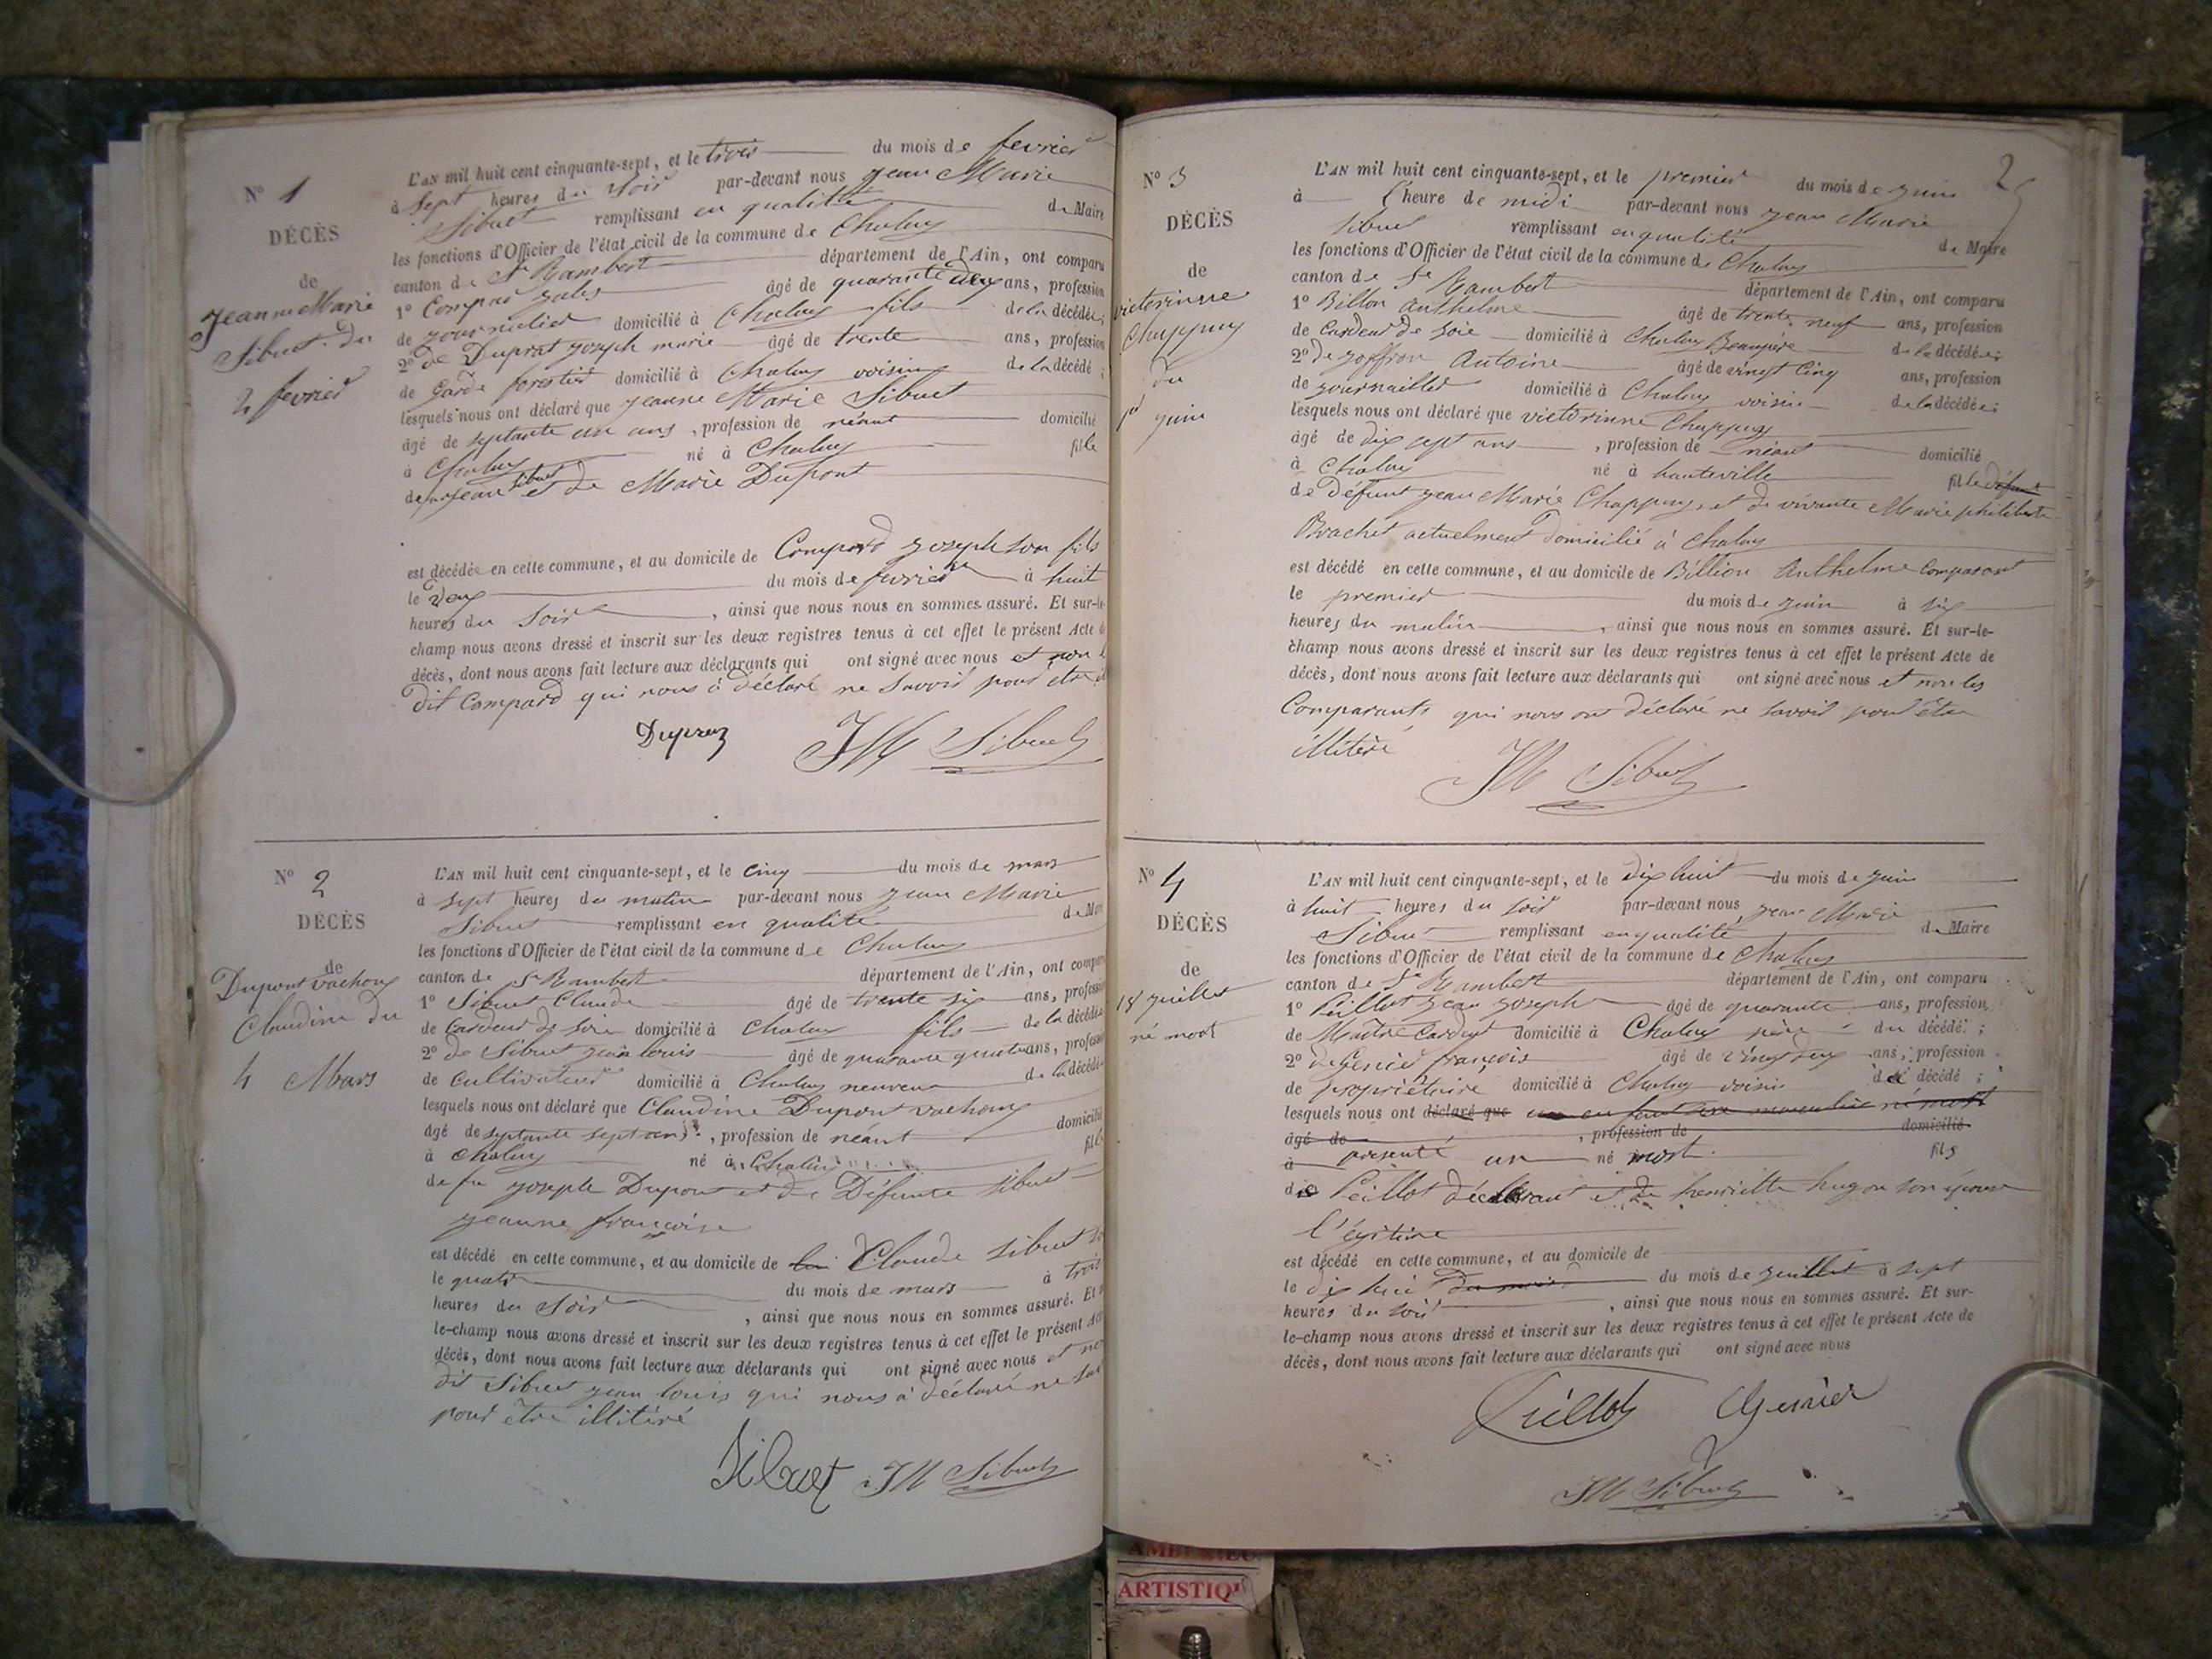 N° 1
DÉCÈS
de
Jeanne Marie
Sibuet du
2 fevrier
L'AN mil huit cent cinquante-sept, et le trois du mois de fevrier
à sept heures du soir par-devant nous Jean Marie
Sibuet remplissant en qualité de Maire
les fonctions d'Officier de l'état civil de la commune de Chaley
canton de St Rambert département de l'Ain, ont comparu
1° Compard âgé de quarante deux ans, profession
de journalier domicilié à Chaley fils de la décédée;
2° de Duprat joseph marie âgé de trente ans, profession
de Garde forestier domicilié à Chaley voisin de la décédé;
lesquels nous ont déclaré que jeanne Marie Sibuet
âgé de septante un ans, profession de néant domicilié
à Chaley né à Chaley fille
de jean Sibuet et de Marie Dupont
est décédée en cette commune, et au domicile de Compard joseph son fils
le deux du mois de fevrier à huit
heures du soir, ainsi que nous nous en sommes assuré. Et sur-le-
champ nous avons dressé et inscrit sur les deux registres tenus à cet effet le présent Acte de
décès, dont nous avons fait lecture aux déclarants qui ont signé avec nous et non
dit Compard qui nous a déclaré ne savoir pour etre
JM Sibuet
N° 2
DÉCÈS
de
Dupont vachon
Claudine du
4 Mars
L'AN mil huit cent cinquante-sept, et le cinq du mois de mars
à sept heures du matin par-devant nous jean Marie
Sibuet remplissant en qualité de Maire
les fonctions d'Officier de l'état civil de la commune de Chaley
canton de St Rambert département de l'Ain, ont comparu
1° Sibuet Claude âgé de trente six ans, profession
de Cardeur de soie domicilié à Chaley fils de la décédée
2° de Sibuet jean louis âgé de quarante quatre ans, profession
de Cultivateur domicilié à Chaley neuveu de la décédée
lesquels nous ont déclaré que Claudine Dupont vachon
âgé de septante sept ans, profession de néant domicilié
à Chaley né à Chaley fille
de fu joseph Dupont et de Défunte Sibuet
jeanne françoise
est décédé en cette commune, et au domicile de Claude Sibuet
le quatre du mois de mars à trois
heures du soir, ainsi que nous nous en sommes assuré. Et
le-champ nous avons dressé et inscrit sur les deux registres tenus à cet effet le présent Acte
décès, dont nous avons fait lecture aux déclarants qui ont signé avec nous et non
dit Sibuet jean louis qui nous a déclaré ne
pour être illitéré
Sibuet JM Sibuet
N° 3
DÉCÈS
de
victorinne
Chappuy
du
1er juin
L'AN mil huit cent cinquante-sept, et le premier du mois de juin
à l'heure de midi par-devant nous jean Marie
Sibuet remplissant en qualité de Maire
les fonctions d'Officier de l'état civil de la commune de Chaley
canton de St Rambert département de l'Ain, ont comparu
1° Billon Anthelme âgé de trente neuf ans, profession
de Cardeur de soie domicilié à Chaley Beaupère de la décédée;
2° de joffron Antoine âgé de vingt cinq ans, profession
de journaillier domicilié à Chaley voisin de la décédée;
lesquels nous ont déclaré que victorinne Chappuy
âgé de dix sept ans, profession de néant domicilié
à Chaley né à hauteville fille
de Défunt jean Marie Chappuy, et de vivante Marie philiberte
Brachet actuelment Domicilié à Chaley
est décédé en cette commune, et au domicile de Billion Anthelme Comparant
le premier du mois de juin à six
heures du matin, ainsi que nous nous en sommes assuré. Et sur-le-
champ nous avons dressé et inscrit sur les deux registres tenus à cet effet le présent Acte de
décès, dont nous avons fait lecture aux déclarants qui ont signé avec nous et non les
Comparants qui nous ont déclaré ne savoir pour être
illitéré
JM Sibuet
N° 4
DÉCÈS
de
18 juillet
né mort
L'AN mil huit cent cinquante-sept, et le dix huit du mois de juin
à huit heures du soir par-devant nous jean Marie
Sibuet remplissant en qualité de Maire
les fonctions d'Officier de l'état civil de la commune de Chaley
canton de St Rambert département de l'Ain, ont comparu
1° Peillot jean joseph âgé de quarante ans, profession
de Maître Cardeur domicilié à Chaley père du décédé;
2° de Genier françois âgé de vingt deux ans, profession
de propriétaire domicilié à Chaley voisin de décédé;
lesquels nous ont déclaré que un enfant sexe masculin né mort
âgé de, profession de domicilié
à présenté un né mort. fils
de Peillot déclarant et de henriette hugon son épouse
l'égitime
est décédé en cette commune, et au domicile de
le dix huit du mois de juillet à sept
heures du soir, ainsi que nous nous en sommes assuré. Et sur-
le-champ nous avons dressé et inscrit sur les deux registres tenus à cet effet le présent Acte de
décès, dont nous avons fait lecture aux déclarants qui ont signé avec nous
Peillot Genier
JM Sibuet
ARTISTIQ